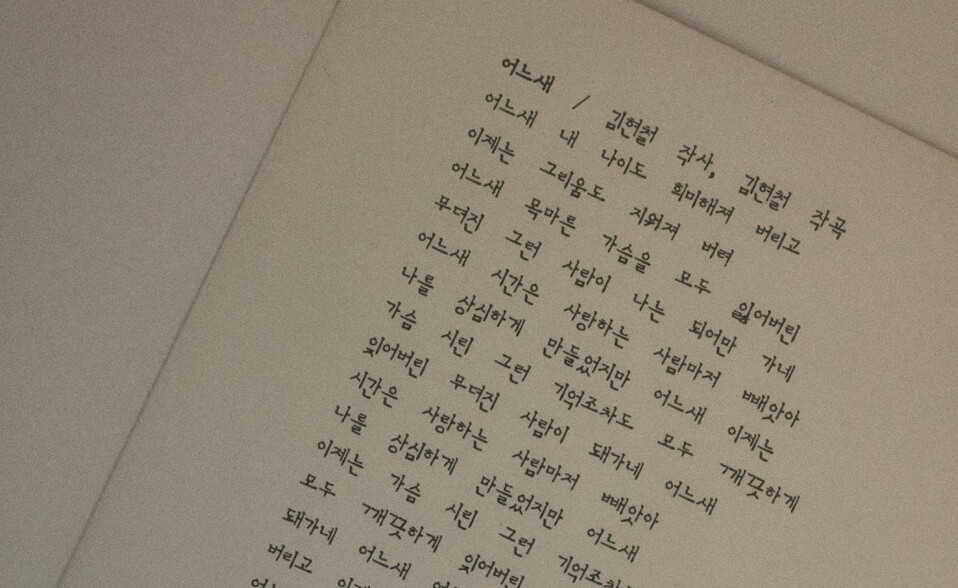 어느새 / 김현철 작사, 김현철 작곡
어느새 내 나이도 희미해져 버리고
이제는 그리움도 지워져 버려
어느새 목마른 가슴을 모두 잃어버린
무뎌진 그런 사람이 나는 되어만 가네
어느새 시간은 사랑하는 사람마저 빼앗아
나를 상심하게 만들었지만 어느새 이제는
가슴 시린 그런 기억조차도 모두 깨끗하게
잊어버린 무뎌진 사람이 돼가네 어느새
시간은 사랑하는 사람마저 빼앗아
나를 상심하게 만들었지만 어느새
이제는 가슴 시린 그런 기억조차
모두 깨끗하게 잊어버린
돼가네 어느새
버리고